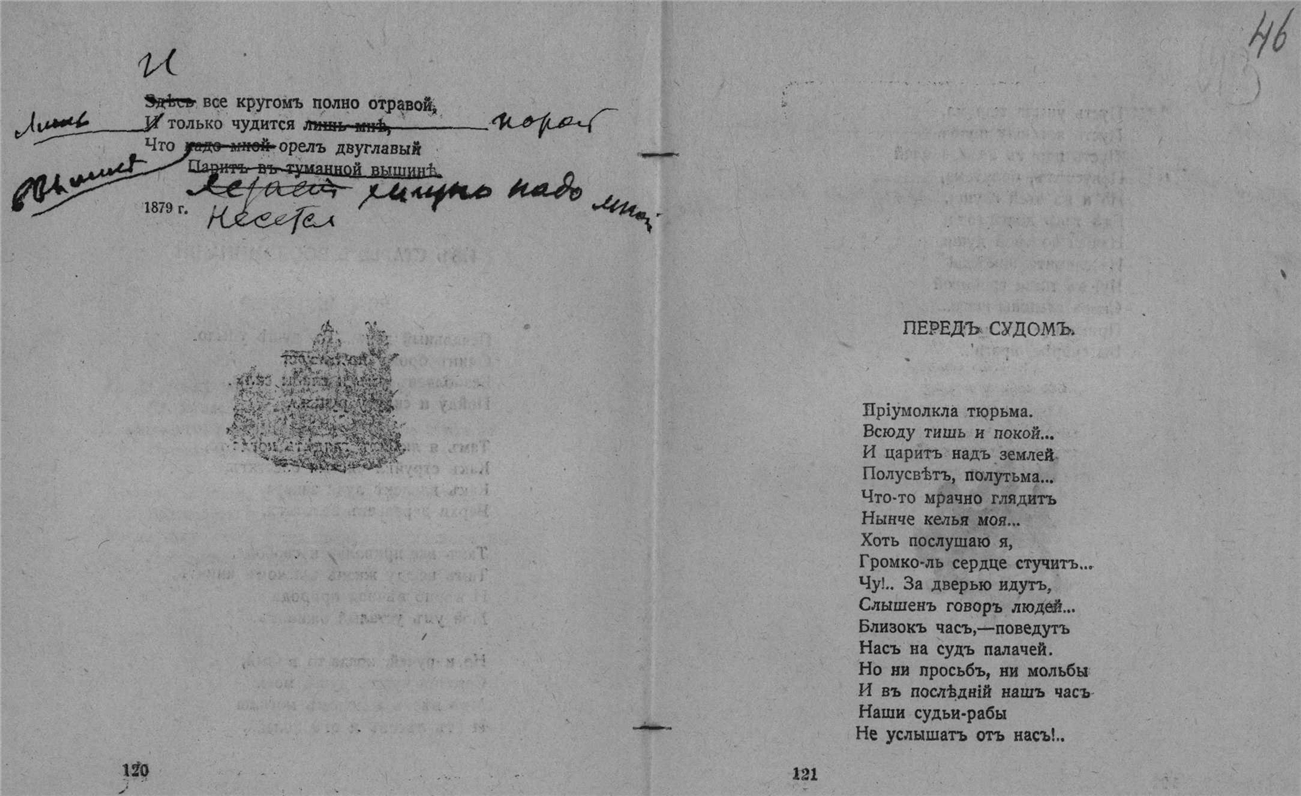 46
И
Здѣсь все кругомъ полно отравой,
Лишь И только чудится лишь мнѣ, порой
Что надо мной орелъ двуглавый
Въ вышинѣ Паритъ въ туманной вышинѣ.
хищно надо мной
1879 г. Несется
120
ПЕРЕДЪ СУДОМЪ.
Пріумолкла тюрьма.
Всюду тишь и покой...
И царитъ надъ землей
Полусвѣтъ, полутьма...
Что-то мрачно глядитъ
Нынче келья моя...
Хоть послушаю я,
Громко-ль сердце стучитъ...
Чу!.. За дверью идутъ,
Слышенъ говоръ людей...
Близокъ часъ,—поведутъ
Насъ на судъ палачей.
Но ни просьбъ, ни мольбы
И въ послѣдній нашъ часъ
Наши судьи-рабы
Не услышатъ отъ насъ!..
121